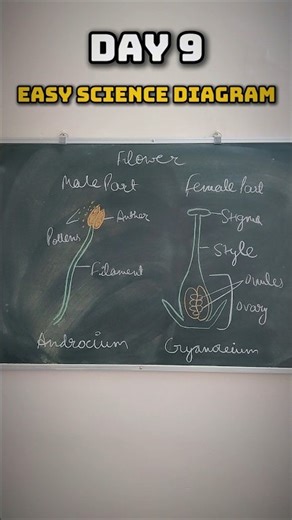 DAY 9
EASY SCIENCE DIAGRAM
Flower
Male Part
Female Part
Pollens
Anther
Filament
Androcium
Stigma
Style
Ovules
Ovary
Gynaecium